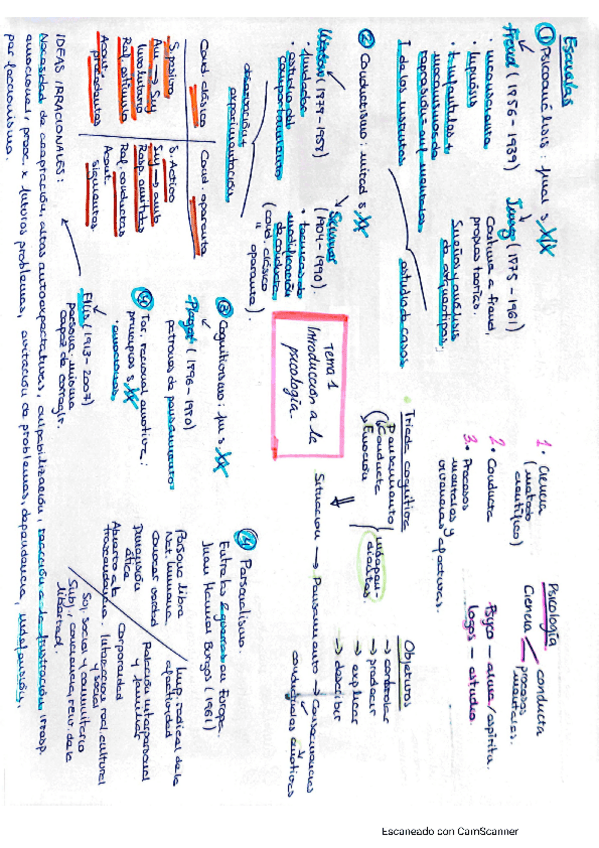 Escuelas
① Psicoanálisis: final s XIX
Freud (1856-1939)
· inconsciente
· impulsos
· T. infantiles +
mecanismos de
represión enf. mentales
I de los instintos
Jung (1875-1961)
Continua a Freud,
propias teorías.
Sueños y análisis
de arquetipos;
estudio de casos
② Conductismo: mitad s XX
Watson (1878-1958)
· fundador
· estudio del
comportamiento
observación y
experimentación
Skinner
(1904-1990).
· técnicas de
modificación
de conducta
(cond. clásico
operante).
Cond. clásico
S. pasivo
Involuntario
Ref. estímulo
Acont.
precedentes
Cond. operante
S. Activo
Resp. emitidas
Ref. conductas
Acont.
siguientes
③ Cognitivismo: fin s XX
Piaget (1896-1980)
patrones de pensamiento
Ter. racional emotiva:
principios s XX
emociones
Ellis (1913-2007)
persona misma
capaz de corregir.
IDEAS IRRACIONALES:
Necesidad de aceptación, altas autoexpectativas, culpabilización, reacción a la frustración, irresp.
emocional, preoc. x futuros problemas, evitación de problemas, dependencia, indefensión,
perfeccionismo.
Tema 1
Introducción a la
psicología.
1. Ciencia
(método
científico)
2. Conducta
3. Procesos
mentales y
afectivas.
Psicología
Ciencia
conducta
procesos
mentales.
Psyco – alma/espíritu.
logos – estudio.
· Triada cognitiva
Pensamiento
Conducta
Emoción
indepen-
dientes.
Situación → Pensamiento → Consecuencias
conductuales emotivas
Objetivos
→ controlar
→ predecir
→ explicar
→ describir
④ Personalismo.
Entre las 2 guerras en Europa.
Juan Manuel Burgos (1961)
Persona libre
Nat. humana
Conocer verdad
Dimensión
ética
Abierto a la
trascendencia.
Imp. radical de la
afectividad
Relación interpersonal
y familiar
Corporeidad
Interacción real cultural
y social
Ser social y comunitario
Subj, conciencia, reiv. de la
libertad.
Escaneado con CamScanner